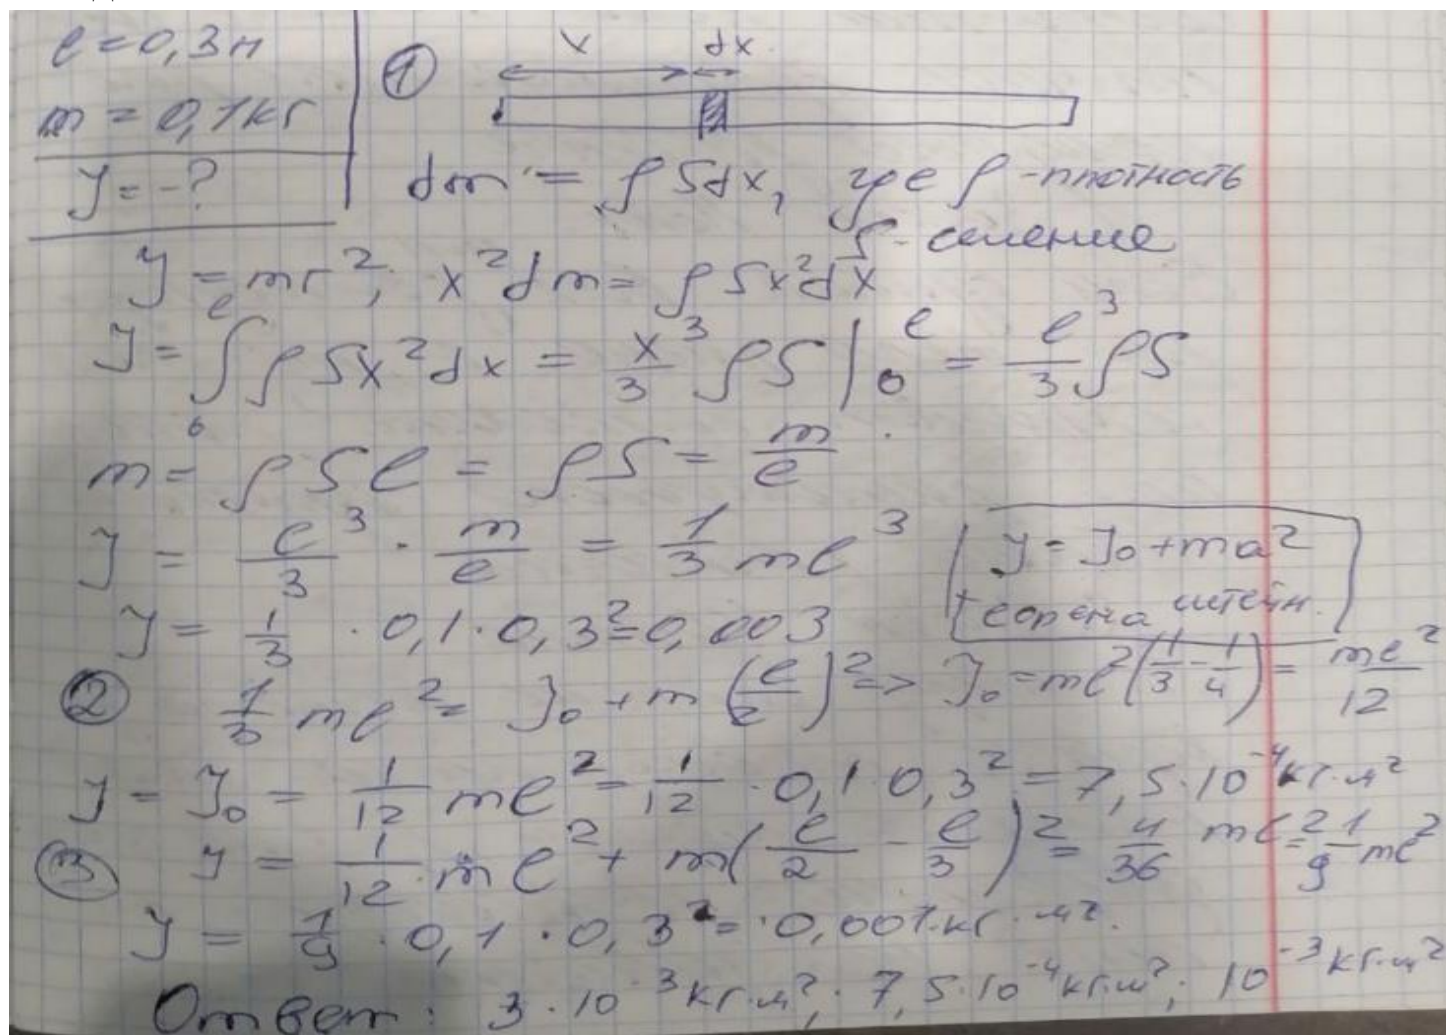 l = 0,3м
m = 0,1кг
J = -?
① x dx
dm = ρSdx, где ρ - плотность
S - сечение
J = mr²; x²dm = ρSx²dx
J = ∫₀ˡ ρSx²dx = x³/3 ρS |₀ˡ = l³/3 ρS
m = ρSl = ρS = m/l
J = l³/3 · m/l = 1/3 ml³
J = J₀ + ma²
теорема штейн.
J = 1/3 · 0,1 · 0,3² = 0,003
② 1/3 ml² = J₀ + m(l/2)² => J₀ = ml²(1/3 - 1/4) = ml²/12
J = J₀ = 1/12 ml² = 1/12 · 0,1 · 0,3² = 7,5·10⁻⁴ кг·м²
③ J = 1/12 ml² + m(l/2 - l/3)² = 4/36 ml² = 1/9 ml²
J = 1/9 · 0,1 · 0,3² = 0,001 кг·м².
Ответ: 3·10⁻³ кг·м²; 7,5·10⁻⁴ кг·м²; 10⁻³ кг·м²